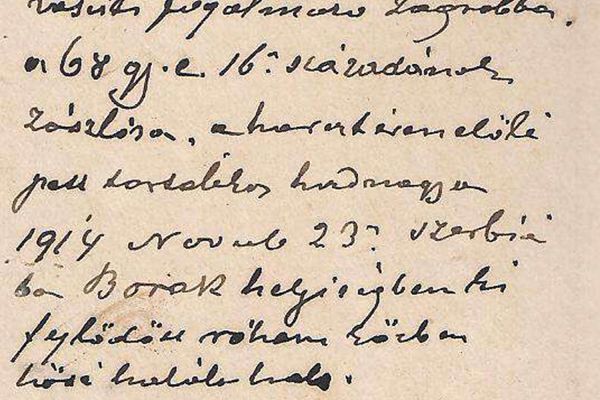 vasúti Zágrábba,
a 68 gy. e. 16 századának
zászlósa, a harcztéren előlé
pett tartalékos hadnagy
1914 Novemb 23 szerbiá
ba Borak helyiségben ki
fejlődött roham közben
hősi halált halt.